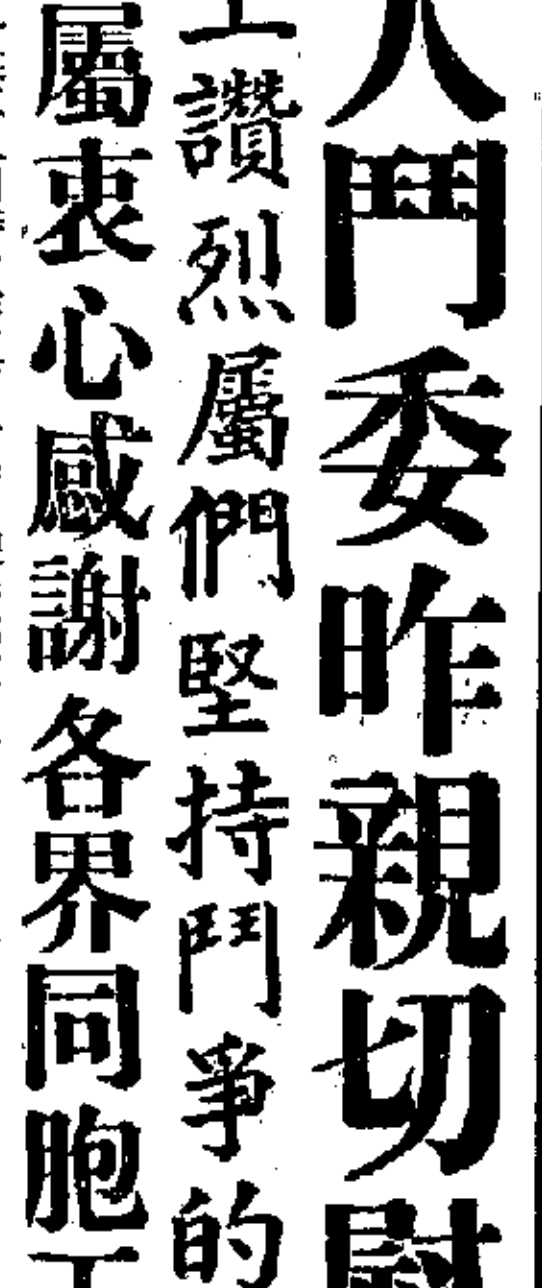 人鬥委昨親切慰
上讚烈屬們堅持鬥爭的
屬衷心感謝各界同胞